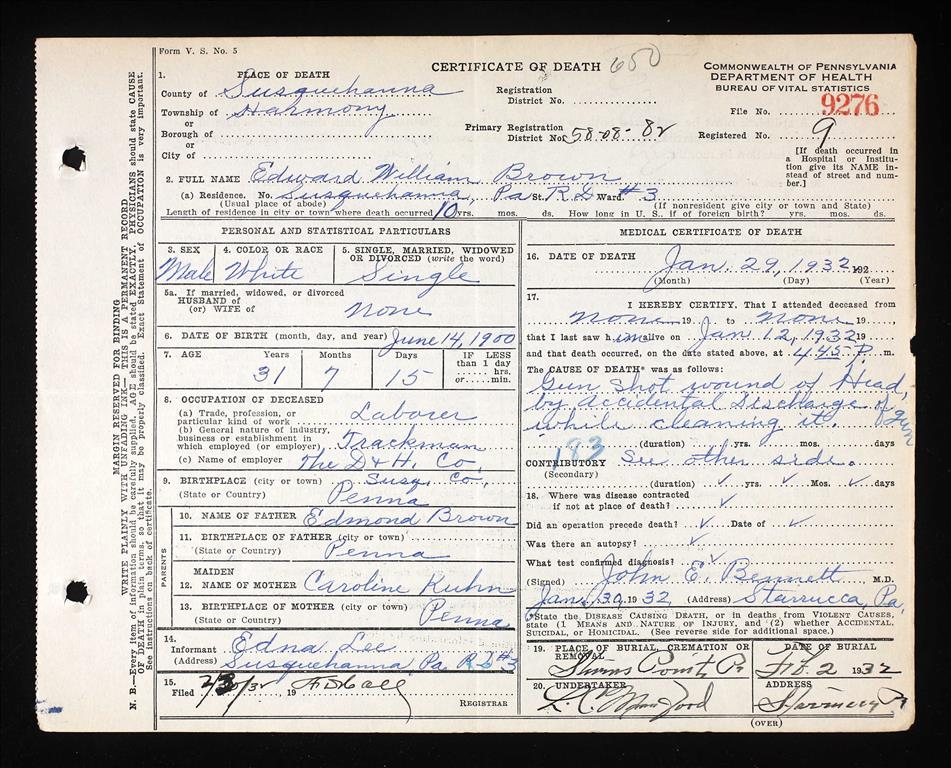 Form V. S. No. 5
CERTIFICATE OF DEATH 650
COMMONWEALTH OF PENNSYLVANIA
DEPARTMENT OF HEALTH
BUREAU OF VITAL STATISTICS
1. PLACE OF DEATH
County of Susquehanna
Township of Harmony
or
Borough of
or
City of
Registration
District No.
Primary Registration
District No. 58-08-82
File No. 9276
Registered No. 9
[If death occurred in
a Hospital or Institu-
tion give its NAME in-
stead of street and num-
ber.]
2. FULL NAME Edward William Brown
(a) Residence. No. Susquehanna, Pa St. R.D. Ward. #3
(Usual place of abode) (If nonresident give city or town and State)
Length of residence in city or town where death occurred 10 yrs. mos. ds. How long in U. S., if of foreign birth? yrs. mos. ds.
PERSONAL AND STATISTICAL PARTICULARS
3. SEX 4. COLOR OR RACE 5. SINGLE, MARRIED, WIDOWED
OR DIVORCED (write the word)
Male White Single
5a. If married, widowed, or divorced
HUSBAND of
(or) WIFE of none
6. DATE OF BIRTH (month, day, and year) June 14, 1900
7. AGE Years Months Days IF LESS
than 1 day
31 7 15 hrs.
or min.
8. OCCUPATION OF DECEASED
(a) Trade, profession, or
particular kind of work Laborer
(b) General nature of industry,
business or establishment in
which employed (or employer) Trackman
(c) Name of employer The D & H. Co.
9. BIRTHPLACE (city or town) Susq. Co.
(State or Country) Penna
PARENTS
10. NAME OF FATHER Edmond Brown
11. BIRTHPLACE OF FATHER (city or town)
(State or Country) Penna
MAIDEN
12. NAME OF MOTHER Caroline Kuhn
13. BIRTHPLACE OF MOTHER (city or town)
(State or Country) Penna
14.
Informant Edna Lee
(Address) Susquehanna Pa R D #3
15.
Filed 19
REGISTRAR
MEDICAL CERTIFICATE OF DEATH
16. DATE OF DEATH Jan. 29, 1932 192
(Month) (Day) (Year)
17.
I HEREBY CERTIFY, That I attended deceased from
none 19 , to none 19 ,
that I last saw him alive on Jan 12, 1932 19
and that death occurred, on the date stated above, at 4.45 P. m.
The CAUSE OF DEATH* was as follows:
Gun shot wound of Head,
by accidental discharge of gun
while cleaning it.
(duration) yrs. mos. days
183
CONTRIBUTORY See other side.
(Secondary)
(duration) ✓ yrs. ✓ Mos. ✓ days
18. Where was disease contracted
if not at place of death? ✓
Did an operation precede death? ✓ Date of ✓
Was there an autopsy? ✓
What test confirmed diagnosis? ✓
(Signed) John E. Bennett M.D.
Jan. 30, 1932 (Address) Starrucca, Pa.
*State the DISEASE CAUSING DEATH, or in deaths from VIOLENT CAUSES,
state (1) MEANS AND NATURE OF INJURY, and (2) whether ACCIDENTAL,
SUICIDAL, or HOMICIDAL. (See reverse side for additional space.)
19. PLACE OF BURIAL, CREMATION OR
REMOVAL DATE OF BURIAL
Feb. 2 1932
20. UNDERTAKER ADDRESS
(OVER)
MARGIN RESERVED FOR BINDING
WRITE PLAINLY WITH UNFADING INK—THIS IS A PERMANENT RECORD
N. B.—Every item of information should be carefully supplied. AGE should be stated EXACTLY. PHYSICIANS should state CAUSE
OF DEATH in plain terms, so that it may be properly classified. Exact Statement of OCCUPATION is very important.
See instructions on back of certificate.